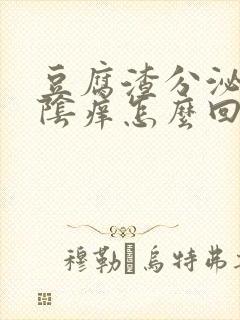 豆腐渣分泌
陰痒怎麼回
穆勒·烏特弗
HANDSON